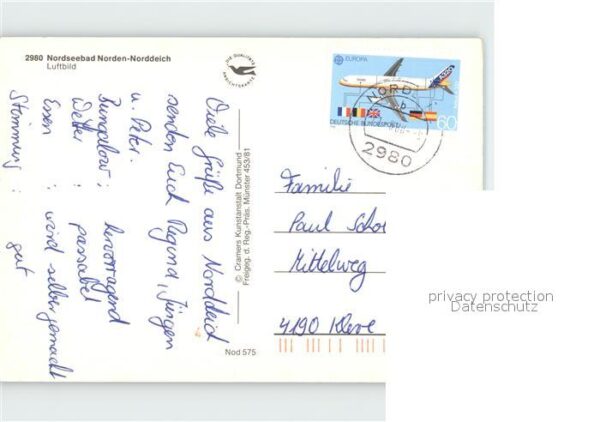 2980 Nordseebad Norden-Norddeich
Luftbild
DIE QUALITÄTS
ANSICHTSKARTE
Viele Grüße aus Norddeich
senden Euch Regina, Jürgen
u. Peter.
Bungalow: hervorragend
Wetter: passabel
Essen: wird selber gemacht
Stimmung: gut
© Cramers Kunstanstalt Dortmund
Freigeg. d. Reg.-Präs. Münster 453/81
Nod 575
EUROPA
DEUTSCHE BUNDESPOST
60
NORD
b
2980
Familie
Paul
Mittelweg
4190 Kleve
privacy protection
Datenschutz